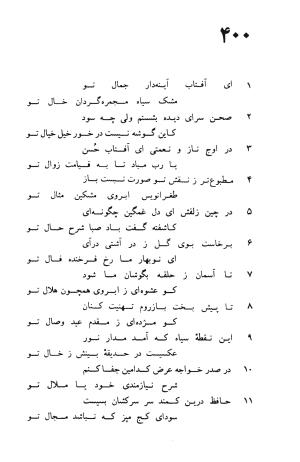 ۴۰۰
۱ ای آفتاب آینه‌دار جمال تو
مشک سیاه مجمره‌گردان خال تو
۲ صحن سرای دیده بشستم ولی چه سود
کاین گوشه نیست در خور خیل خیال تو
۳ در اوج ناز و نعمتی ای آفتاب حُسن
یا رب مباد تا به قیامت زوال تو
۴ مطبوع‌تر ز نقش تو صورت نبست باز
طغرانویس ابروی مشکین مثال تو
۵ در چین زلفش ای دل غمگین چگونه‌ای
کاشفته گفت باد صبا شرح حال تو
۶ برخاست بوی گل ز در آشتی درآی
ای نوبهار ما رخ فرخنده فال تو
۷ تا آسمان ز حلقه بگوشان ما شود
کو عشوه‌ای ز ابروی همچون هلال تو
۸ تا پیش بخت بازروم تهنیت کنان
کو مژده‌ای ز مقدم عید وصال تو
۹ این نقطهٔ سیاه که آمد مدار نور
عکسیست در حدیقهٔ بینش ز خال تو
۱۰ در صدر خواجه عرض کدامین جفا کنم
شرح نیازمندی خود یا ملال تو
۱۱ حافظ درین کمند سر سرکشان بسیست
سودای کج مپز که نباشد مجال تو